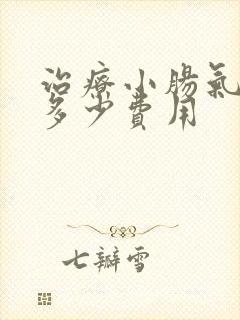 治療小腸氣
多少費用
七瓣雪